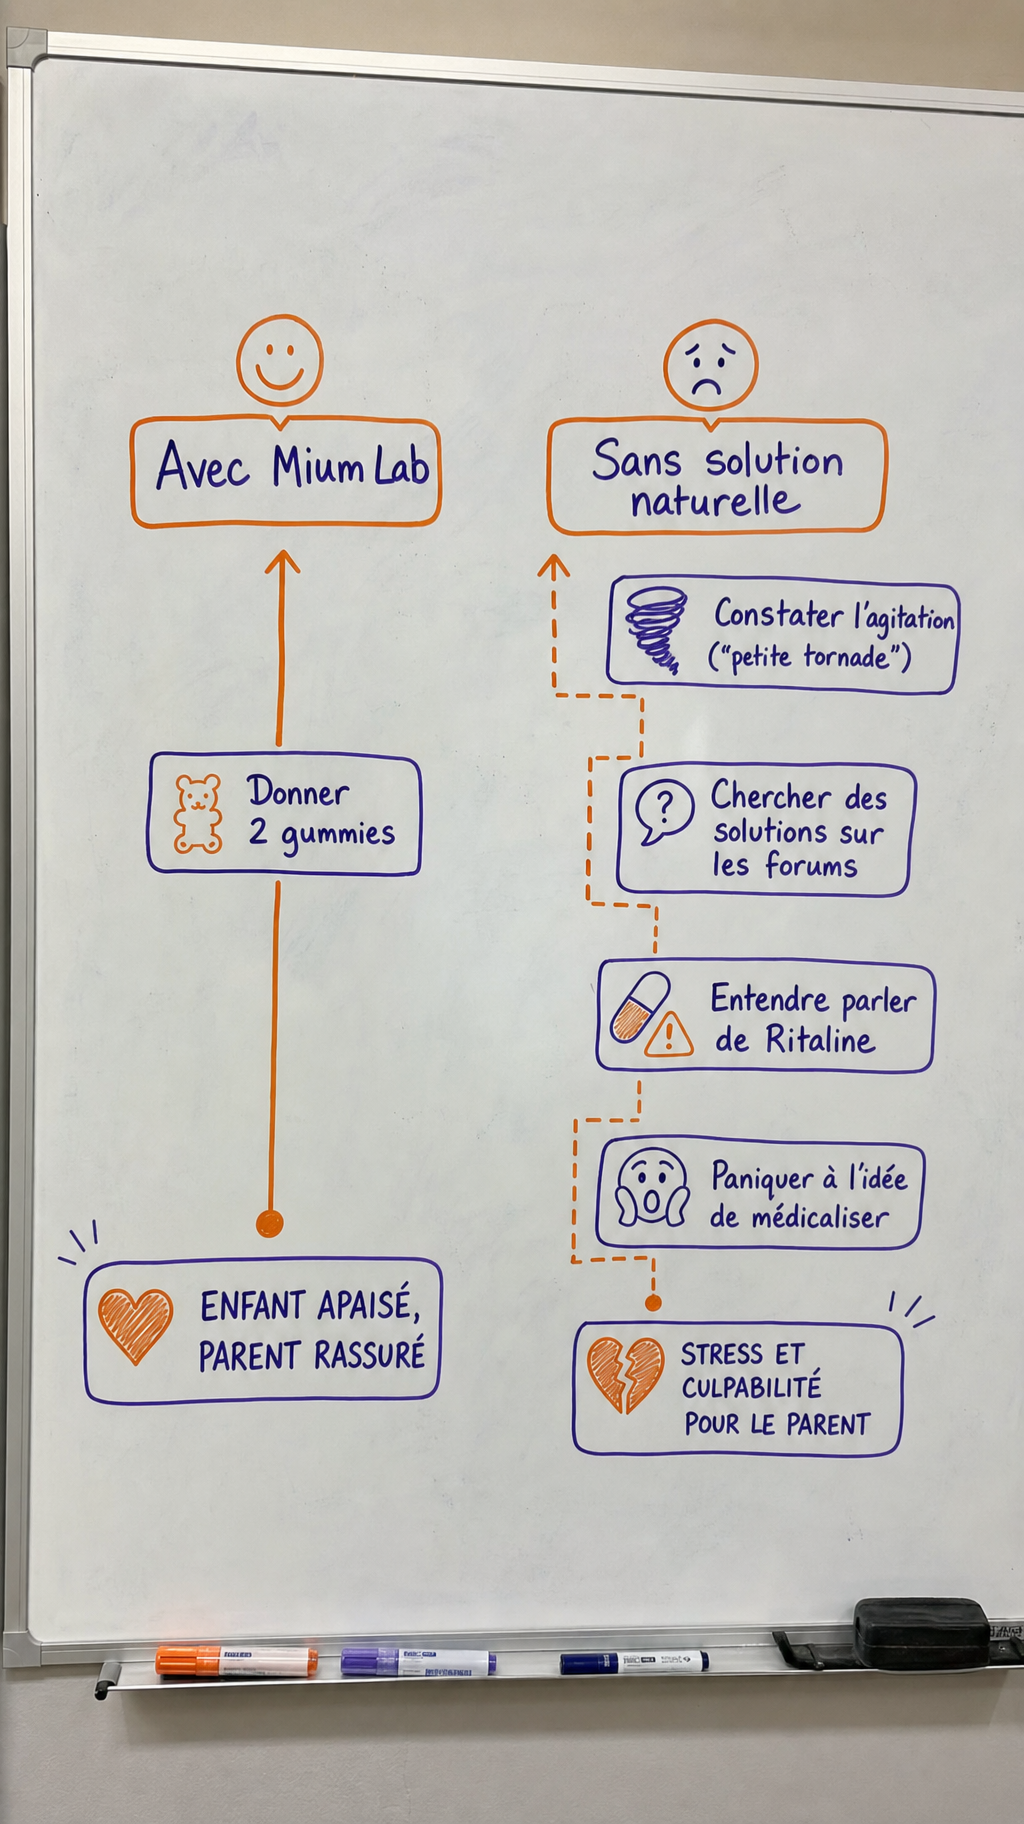 Avec Mium Lab
Donner
2 gummies
ENFANT APAISÉ,
PARENT RASSURÉ
Sans solution
naturelle
Constater l'agitation
("petite tornade")
?
Chercher des
solutions sur
les forums
!
Entendre parler
de Ritaline
Paniquer à l'idée
de médicaliser
STRESS ET
CULPABILITÉ
POUR LE PARENT